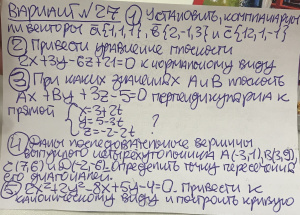 ВАРИАНТ №27 ① Установить, компланарны
ли векторы a{1,1,1}, b{2,-1,3} и c{12,1,-1}
② Привести уравнение плоскости
2x+3y-6z+21=0 к нормальному виду
③ При каких значениях А и В плоскость
Ax+By+3z-5=0 перпендикулярна к
прямой { x=3+2t
y=5-3t ?
z=-2-2t
④ Даны последовательные вершины
выпуклого четырёхугольника A(-3,1), B(3,9),
C(7,6) и D(-2,-6). Определить точку пересечения
его диагоналей.
⑤ 2x²+2y²-8x+5y-4=0. Привести к
каноническому виду и построить кривую